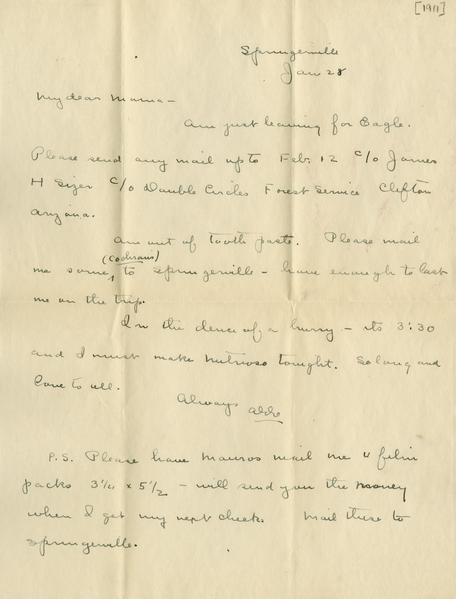 [1911]
Springerville
Jan 28
My dear Mama -
Am just leaving for Eagle.
Please send any mail up to Feb. 12 c/o James
H Sizer c/o Double Circles Forest Service Clifton
Arizona.
Am out of tooth paste. Please mail
(Cochrans)
me some to Springerville - have enough to last
me on the trip.
In the deuce of a hurry - its 3:30
and I must make Nutrioso tonight. So long and
love to all.
Always Aldo
P.S. Please have Mauros mail me 4 film
packs 3 1/4 x 5 1/2 - will send you the money
when I get my next check. Mail these to
Springerville.